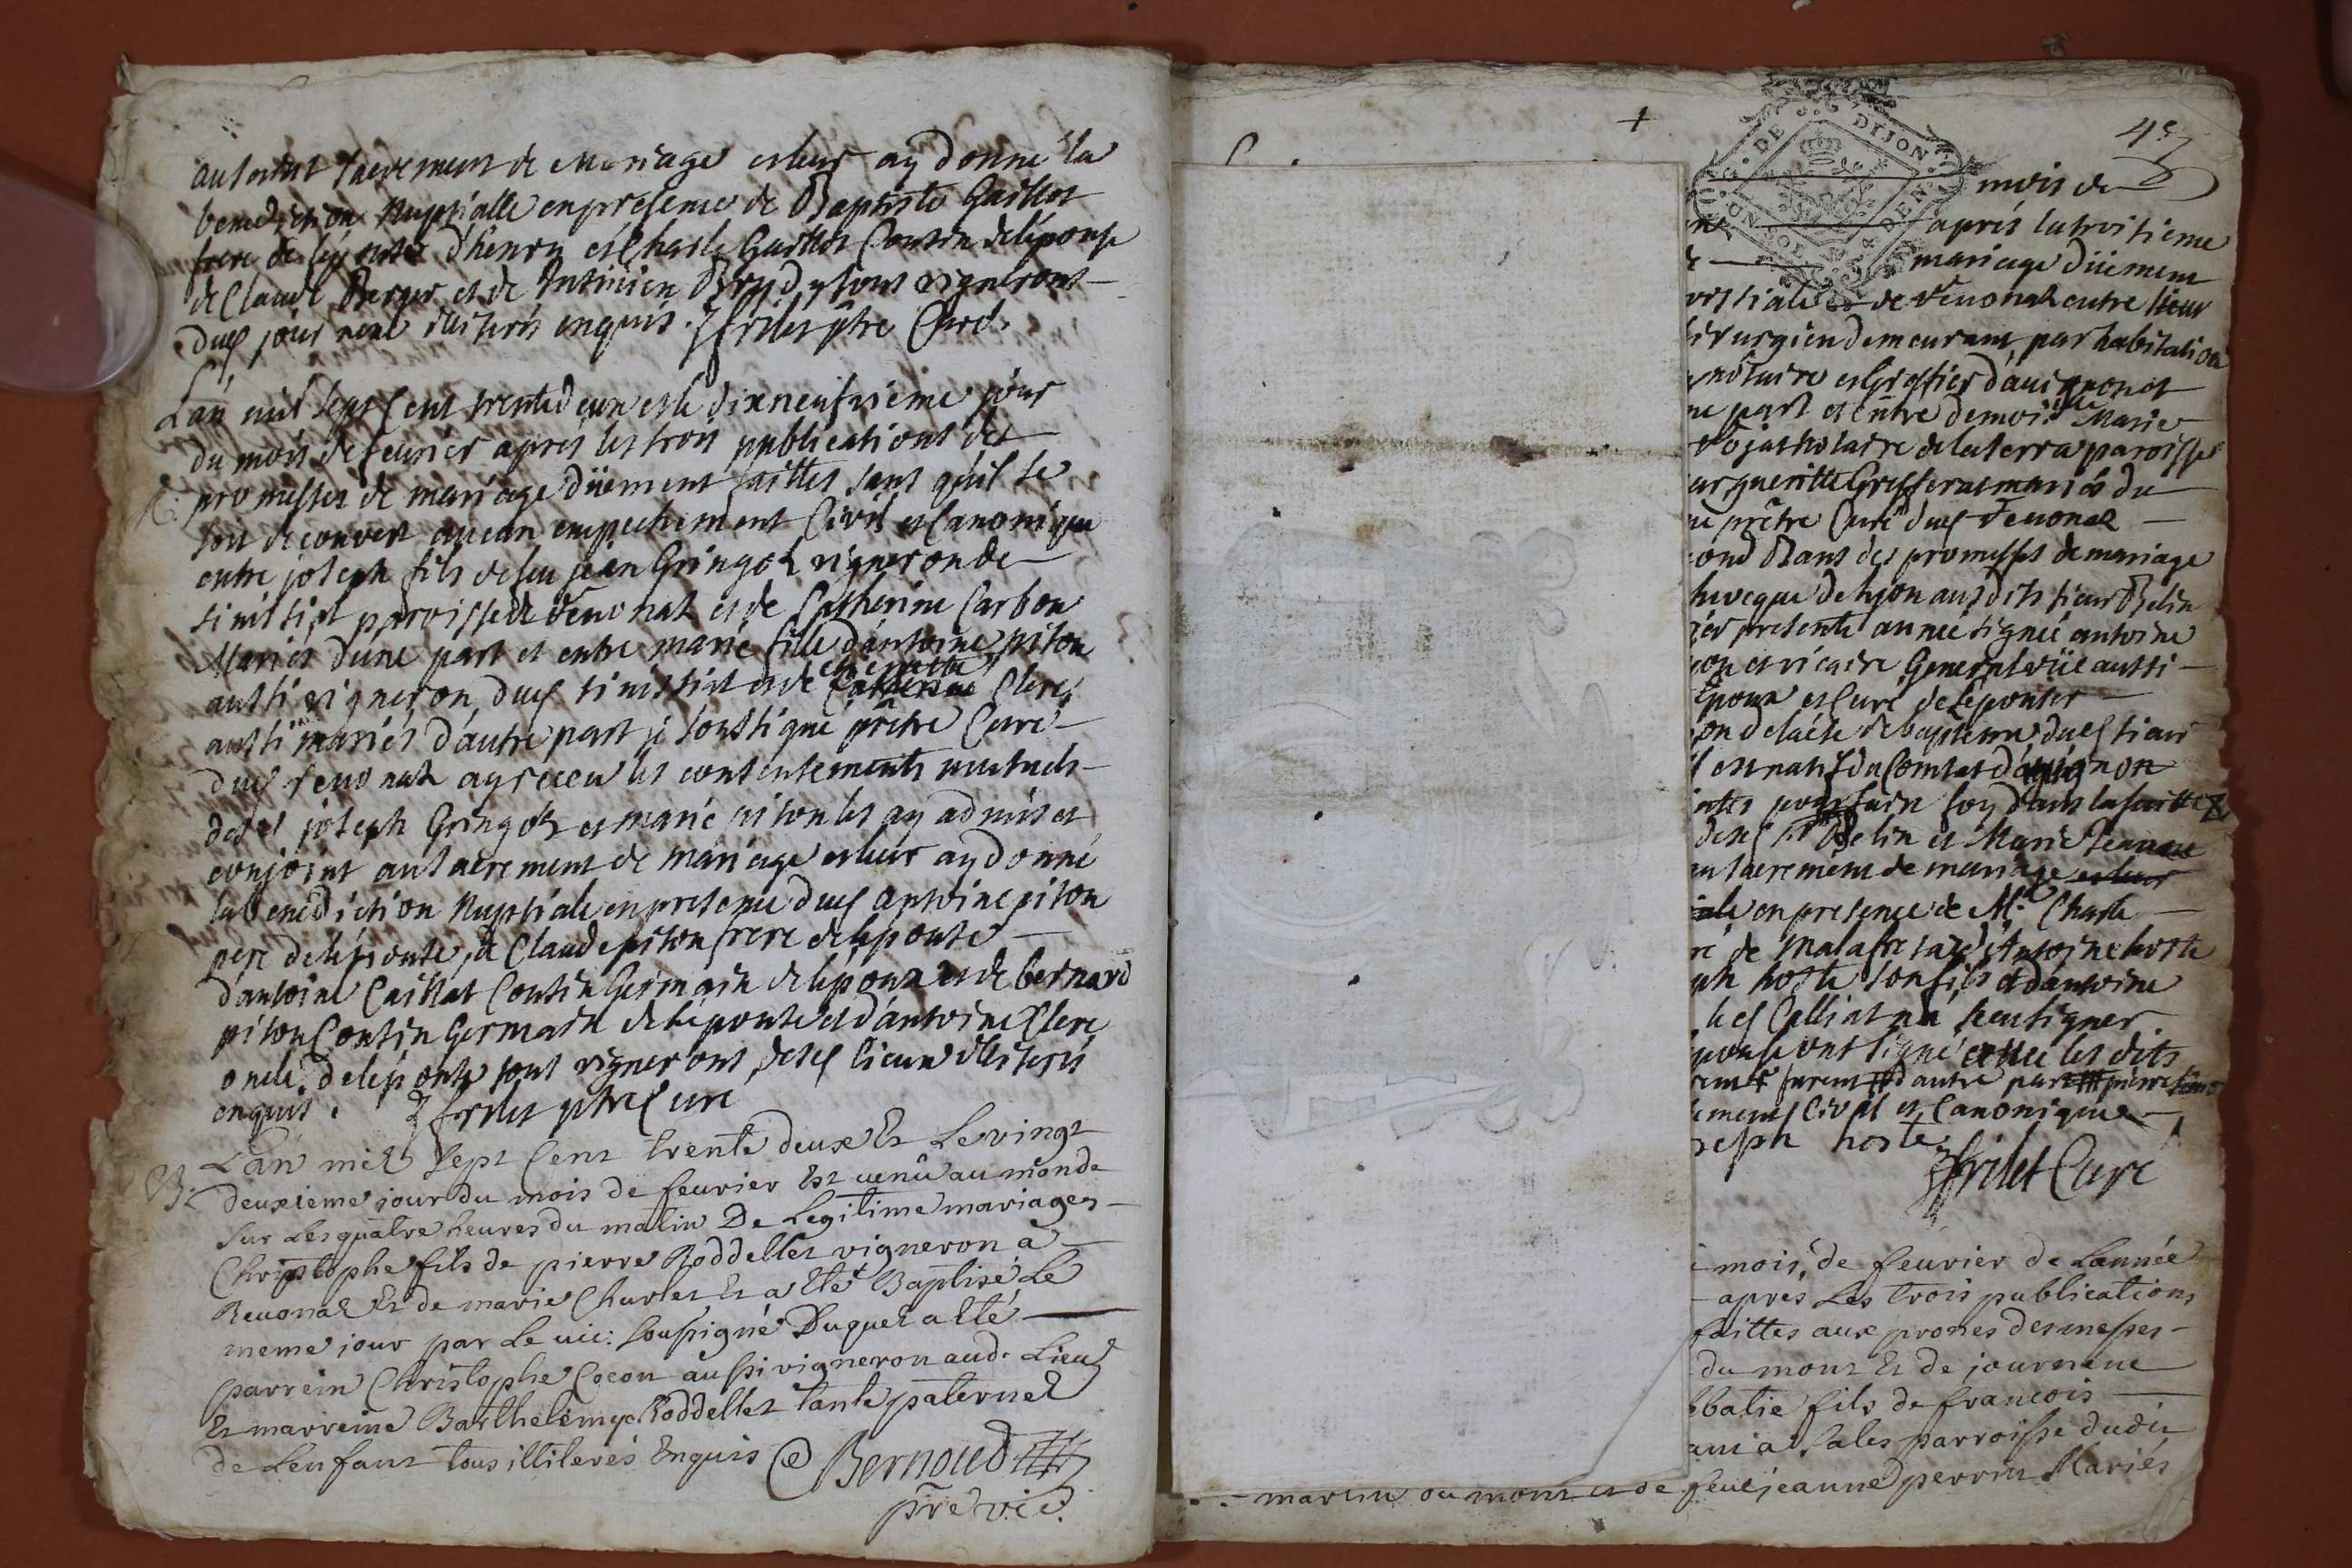 au saint sacrement de Mariage et leur ay donné la
benediction Nuptialle en presence de Baptiste Gaillot
frere de l'épouse d'henry et Charle Gaillot Cousin de l'épouse
de Claude Berger et de Bryd y tous vignerons
dud jour neuf illiterés enquis. frilet ptre Curé.
L'an mil sept Cent trente deux et le dixneufvieme jour
du mois de feurier aprés les trois publications des
promesses de mariage düement faittes sans qu'il se
soit decouvert aucun empechement Civil et Canonique
entre joseph fils de feu jean Gringoz vigneron de
simissiat paroisse de Reuonat et de Catherine Carbon
Mariés d'une part et entre marie fille d'antoine piton
aussi vigneron dud simissiat et de Clerc
aussi mariés d'autre part je soussigné prêtre Curé
dud Reuonat ay receu les consentements mutuels
desd joseph Gringoz et marie piton les ay admis et
conjoint au sacrement de mariage et leur ay donné
la benediction Nuptiale en presence dud antoine piton
pere de l'épouse, de Claude piton frere de l'épouse
d'antoine Caillat Cousin Germain de l'époux et de bernard
piton Cousin Germain de l'épouse et d'antoine Clerc
oncle de l'épouse tous vignerons desd lieux illiterés
enquis. frilet ptre Curé
B: L'an mil sept Cent trente deux Et Le vingt
deuxieme jour du mois de feurier Est uenû au monde
sur Les quatre heures du matin De Legitime mariage
Christophe fils de pierre Roddellet vigneron a
Reuonat Et de marie Charlet Et a Eté Baptisé Le
meme jour par Le uic: soussigné Duquel a Eté
parrein Christophe Cocon aussi vigneron aud. Lieu
Et marreine Barthelemye Roddellet tante paternel
de L'enfant tous illiterés Enquis Bernoud
pre vic.
DE DIJON
mois de
aprés la troisieme
mariage düement
de Reuonat entre sieur
irurgien demeurant par habitation
notaire et Greffier d'auignon et
ne part et entre demoiselle Marie
notaire de la terra paroisse
argueritte Gresserat mariés du
prêtre Curé dud Reuonat
ond Bans des promesses de mariage
heveque de lyon auxdits sieur Belin
presente année signée antoine
on et vicaire General vüe aussi
Epoux et Curé de l'épouse
on de l'acte de bapteme dud sieur
est natif du Comtat d'auignon
pour faire foy dans la suitte
desd Sr Belin et Marie Jeanne
au sacrement de mariage et leur
ale en presence de Mr. Charle
re de Malafretaz d'Antoine hoste
ph hoste son fils et d'antoine
led Calliat sieu signer
epouse ont signé auec les dits
furent d'autre part
ement Civil et Canonique
oseph hoste
frilet Curé
mois, de feurier de Lannée
apres Les trois publications
faittes aux prones des messes
du mont Et de journeue
batie fils de francois
a Sales parroisse dudit
martin du mont et de feue jeanne perrin Mariés